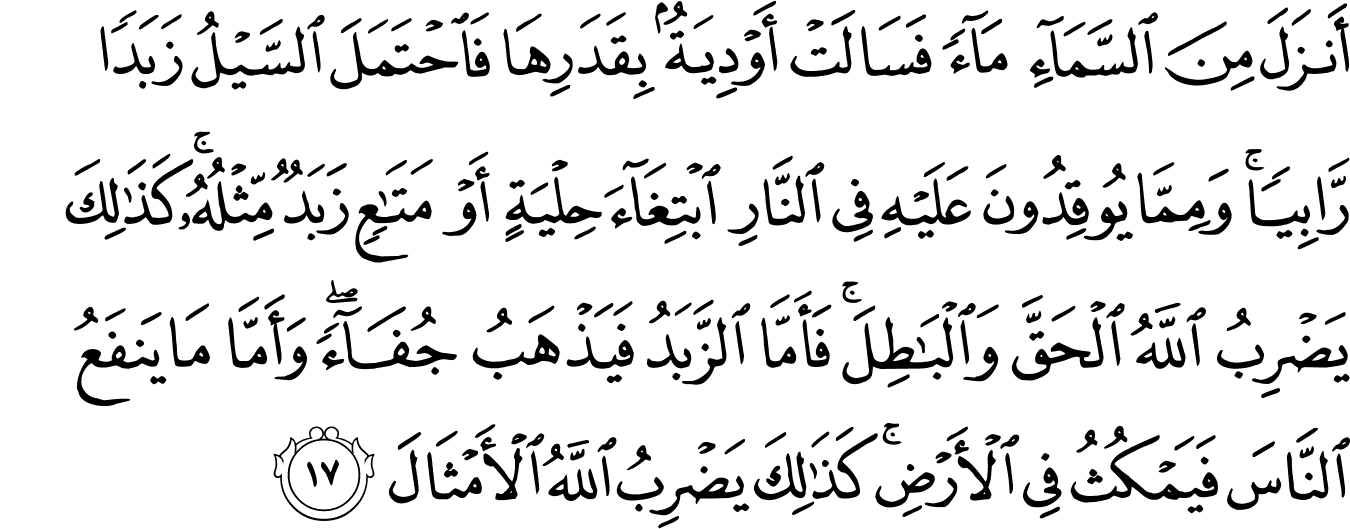 أَنزَلَ مِنَ ٱلسَّمَآءِ مَآءً فَسَالَتْ أَوْدِيَةٌۢ بِقَدَرِهَا فَٱحْتَمَلَ ٱلسَّيْلُ زَبَدًا
رَّابِيًا ۚ وَمِمَّا يُوقِدُونَ عَلَيْهِ فِى ٱلنَّارِ ٱبْتِغَآءَ حِلْيَةٍ أَوْ مَتَـٰعٍ زَبَدٌ مِّثْلُهُۥ ۚ كَذَٰلِكَ
يَضْرِبُ ٱللَّهُ ٱلْحَقَّ وَٱلْبَـٰطِلَ ۚ فَأَمَّا ٱلزَّبَدُ فَيَذْهَبُ جُفَآءً ۖ وَأَمَّا مَا يَنفَعُ
ٱلنَّاسَ فَيَمْكُثُ فِى ٱلْأَرْضِ ۚ كَذَٰلِكَ يَضْرِبُ ٱللَّهُ ٱلْأَمْثَالَ ١٧